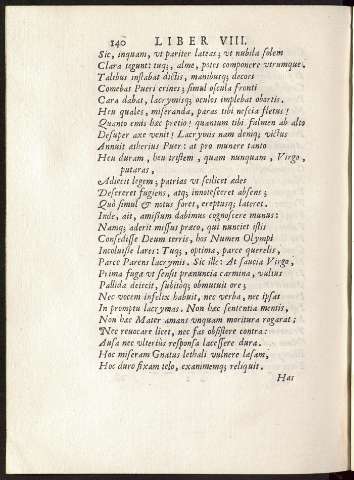 140 LIBER VIII.
Sic, inquam, vt pariter lateas; vt nubila solem
Clara tegunt: tuq; , alme, potes componere vtrumque.
Talibus instabat dictis, manibusq; decori
Comebat Pueri crines; simul oscula fronti
Cara dabat, lacrymisq; oculos implebat obortis.
Heu quales, miseranda, paras tibi nescia fletus!
Quanto emis hæc pretio! quantum tibi fulmen ab alto
Desuper axe venit! Lacrymis nam deniq; victus
Annuit ætherius Puer: at pro munere tanto
Heu duram, heu tristem, quam nunquam, Virgo,
putaras,
Adiecit legem; patrias vt scilicet ædes
Desereret fugiens, atq; innotesceret absens;
Quò simul & notus foret, ereptusq; lateret.
Inde, ait, amissum dabimus cognoscere munus:
Namq; aderit missus præco, qui nunciet istis
Consedisse Deum terris, hos Numen Olympi
Incoluisse lares: Tuq; , optima, parce querelis,
Parce Parens lacrymis. Sic ille: At saucia Virgo,
Prima fugæ vt sensit prænuncia carmina, vultus
Pallida deiecit, subitòq; obmutuit ore;
Nec vocem infelix habuit, nec verba, nec ipsas
In promptu lacrymas. Non hæc sententia mentis,
Non hæc Mater amans vnquam moritura rogarat;
Nec reuocare licet, nec fas obsistere contra:
Ausa nec vlterius responsa lacessere dura.
Hoc miseram Gnatus lethali vulnere læsam,
Hoc duro fixam telo, exanimemq; reliquit.
Has